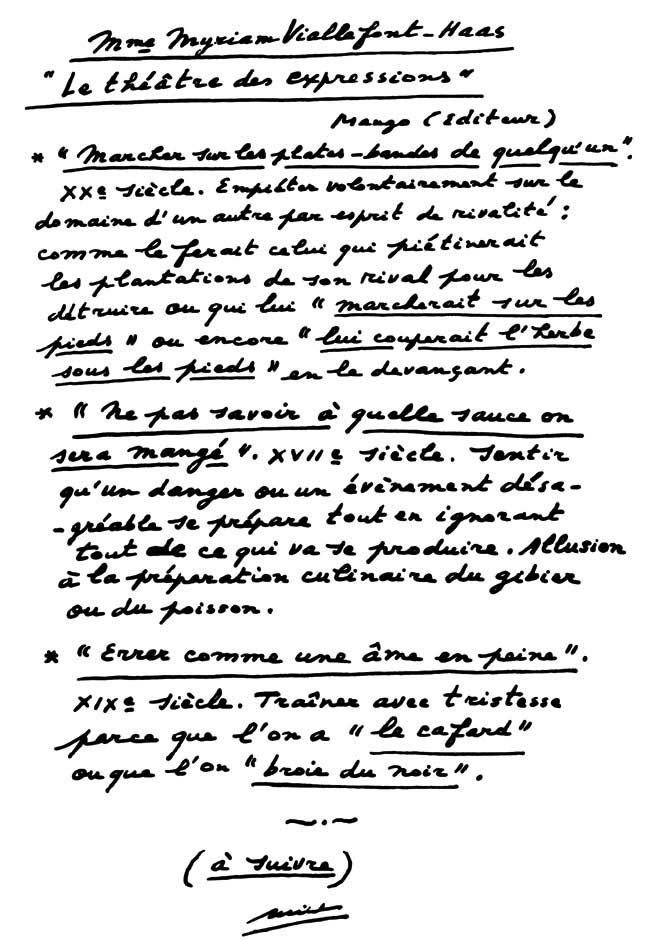 Mme Myriam Viallefont-Haas
"Le théâtre des expressions"
Mango (Editeur)
* "Marcher sur les plates-bandes de quelqu'un".
XXe siècle. Empiéter volontairement sur le
domaine d'un autre par esprit de rivalité :
comme le ferait celui qui piétinerait
les plantations de son rival pour les
détruire ou qui lui "marcherait sur les
pieds" ou encore "lui couperait l'herbe
sous les pieds" en le devançant.
* "Ne pas savoir à quelle sauce on
sera mangé". XVIIe siècle. Sentir
qu'un danger ou un évènement désa-
-gréable se prépare tout en ignorant
tout de ce qui va se produire. Allusion
à la préparation culinaire du gibier
ou du poisson.
* "Errer comme une âme en peine".
XIXe siècle. Traîner avec tristesse
parce que l'on a "le cafard"
ou que l'on "broie du noir".
(à suivre)